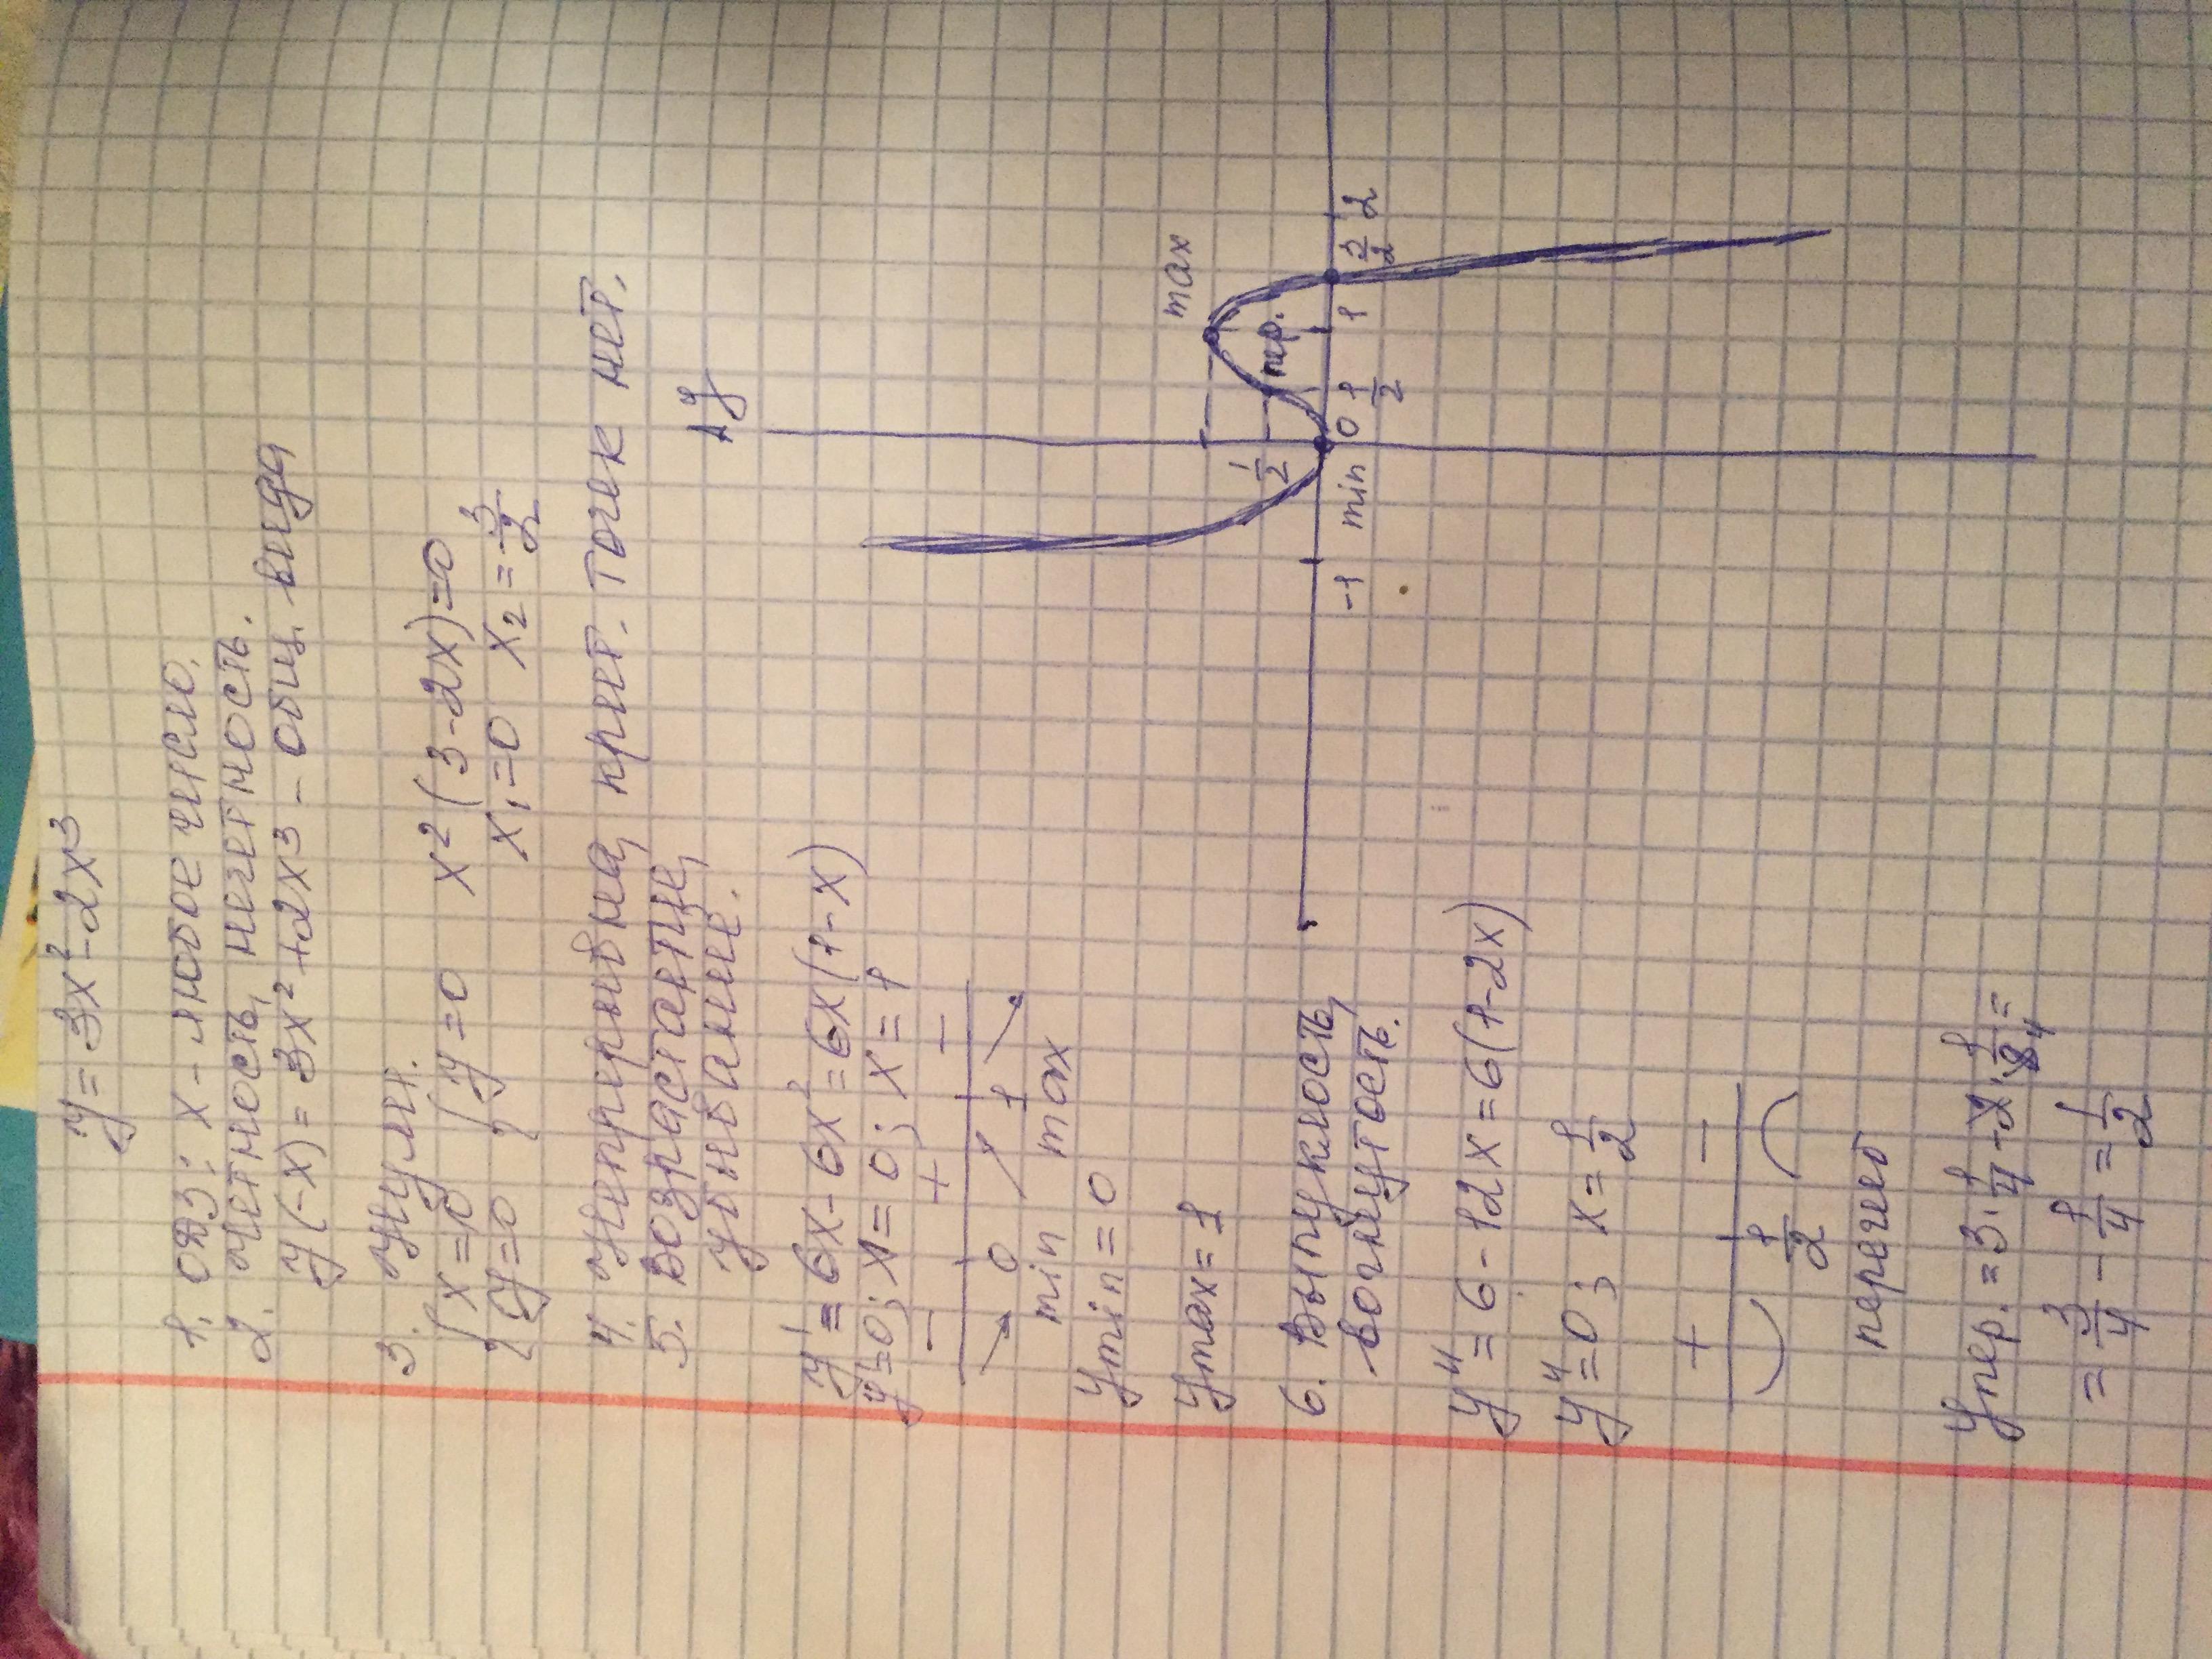 y = 3x² - 2x³
1. ОДЗ: x - любое число.
2. Четность, нечетность.
y(-x) = 3x² + 2x³ - общ. вида
3. Нули.
{ x = 0 { y = 0 x²(3 - 2x) = 0
{ y = 0 x₁ = 0 x₂ = 3/2
4. Непрерывна, крит. точек нет.
5. Возрастание,
убывание.
y' = 6x - 6x² = 6x(1 - x)
y' = 0; x = 0; x = 1
- + -
0 1
min max
y min = 0
y max = 1
6. Выпуклость,
вогнутость.
y'' = 6 - 12x = 6(1 - 2x)
y'' = 0; x = 1/2
+ -
1/2
перегиб
y пер. = 3 · 1/4 - 2 · 1/8 =
4
= 3/4 - 1/4 = 1/2
y
max
1/2
пер.
-1 min 0 1/2 1 3/2 2